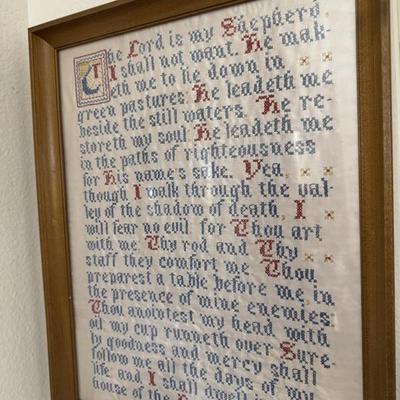 The Lord is my Shepherd.
I shall not want. He mak-
eth me to lie down in
green pastures. He leadeth me
beside the still waters. He re-
storeth my soul. He leadeth me
in the paths of righteousness
for His name's sake. Yea
though I walk through the val-
ley of the shadow of death, I
will fear no evil: for Thou art
with me. Thy rod and Thy
staff they comfort me. Thou
preparest a table before me in
the presence of mine enemies:
Thou anointest my head with
oil; my cup runneth over. Sure-
ly goodness and mercy shall
follow me all the days of my
life: and I shall dwell in
house of the